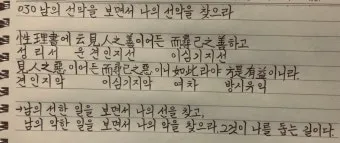 030 남의 선악을 보면서 나의 선악을 찾으라
性理書에 云 見人之善이어든 而尋己之善하고
성리서 운 견인지선 이심기지선
見人之惡이어든 而尋己之惡이니 如此라야 方是有益이니라.
견인지악 이심기지악 여차 방시유익
→남의 선한 일을 보면서 나의 선을 찾고,
남의 악한 일을 보면서 나의 악을 찾으라. 그것이 나를 돕는 길이다.